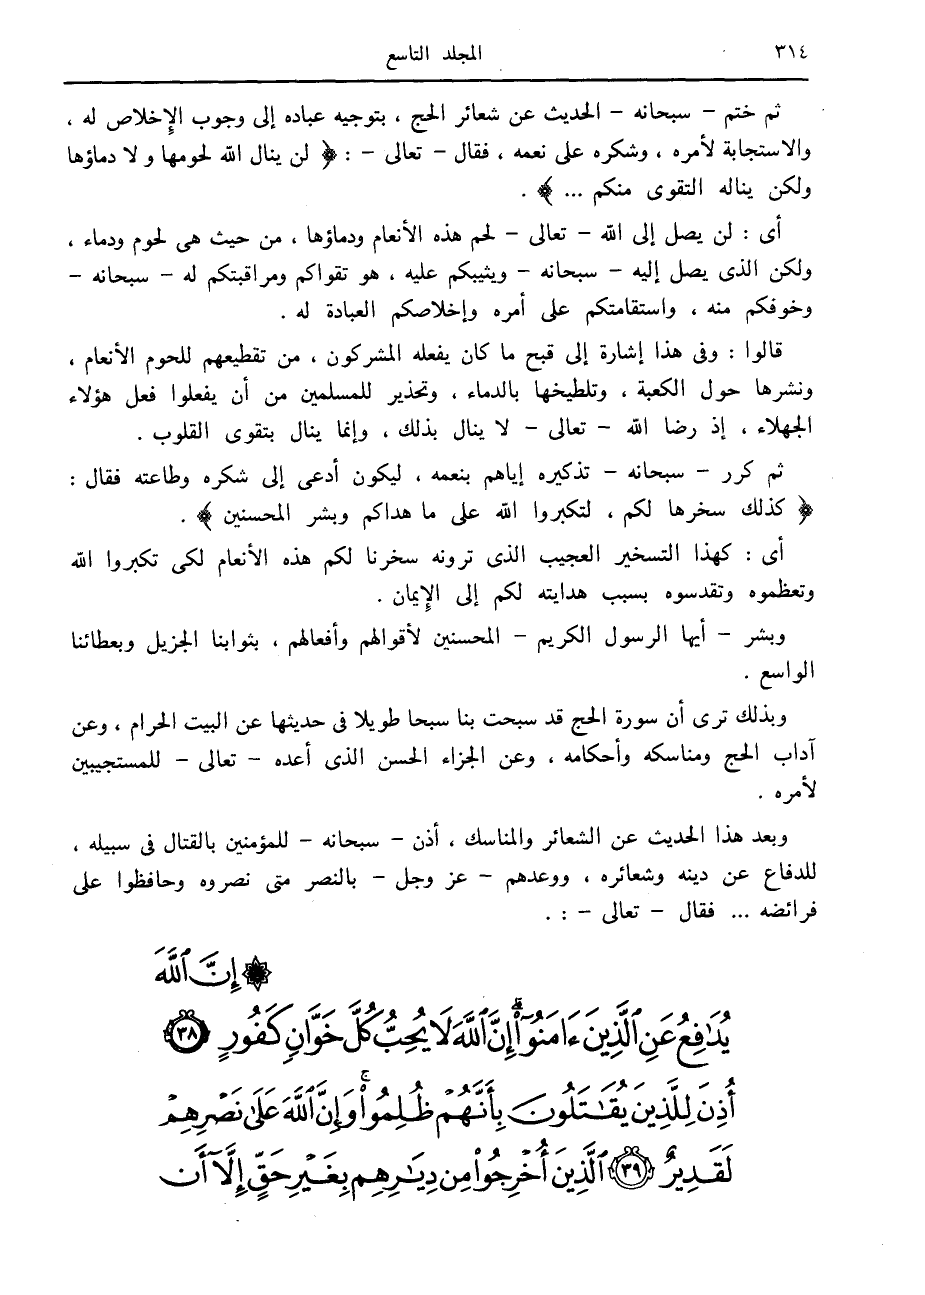 ٣١٤ المجلد التاسع
ثم ختم – سبحانه – الحديث عن شعائر الحج ، بتوجيه عباده إلى وجوب الإخلاص له ،
والاستجابة لأمره ، وشكره على نعمه ، فقال – تعالى – : ﴿ لن ينال الله لحومها ولا دماؤها
ولكن يناله التقوى منكم ... ﴾ .
أى : لن يصل إلى الله – تعالى – لحم هذه الأنعام ودماؤها ، من حيث هى لحوم ودماء ،
ولكن الذى يصل إليه – سبحانه – ويثيبكم عليه ، هو تقواكم ومراقبتكم له – سبحانه –
وخوفكم منه ، واستقامتكم على أمره وإخلاصكم العبادة له .
قالوا : وفى هذا إشارة إلى قبح ما كان يفعله المشركون ، من تقطيعهم للحوم الأنعام ،
ونشرها حول الكعبة ، وتلطيخها بالدماء ، وتحذير للمسلمين من أن يفعلوا فعل هؤلاء
الجهلاء ، إذ رضا الله – تعالى – لا ينال بذلك ، وإنما ينال بتقوى القلوب .
ثم كرر – سبحانه – تذكيره إياهم بنعمه ، ليكون أدعى إلى شكره وطاعته فقال :
﴿ كذلك سخرها لكم ، لتكبروا الله على ما هداكم وبشر المحسنين ﴾ .
أى : كهذا التسخير العجيب الذى ترونه سخرنا لكم هذه الأنعام لكى تكبروا الله
وتعظموه وتقدسوه بسبب هدايته لكم إلى الإيمان .
وبشر – أيها الرسول الكريم – المحسنين لأقوالهم وأفعالهم ، بثوابنا الجزيل وبعطائنا
الواسع .
وبذلك ترى أن سورة الحج قد سبحت بنا سبحا طويلا فى حديثها عن البيت الحرام ، وعن
آداب الحج ومناسكه وأحكامه ، وعن الجزاء الحسن الذى أعده – تعالى – للمستجيبين
لأمره .
وبعد هذا الحديث عن الشعائر والمناسك ، أذن – سبحانه – للمؤمنين بالقتال فى سبيله ،
للدفاع عن دينه وشعائره ، ووعدهم – عز وجل – بالنصر متى نصروه وحافظوا على
فرائضه ... فقال – تعالى – : .
۞ إِنَّ ٱللَّهَ
يُدَٰفِعُ عَنِ ٱلَّذِينَ ءَامَنُوٓا۟ ۗ إِنَّ ٱللَّهَ لَا يُحِبُّ كُلَّ خَوَّانٍ كَفُورٍ ٣٨
أُذِنَ لِلَّذِينَ يُقَٰتَلُونَ بِأَنَّهُمْ ظُلِمُوا۟ ۚ وَإِنَّ ٱللَّهَ عَلَىٰ نَصْرِهِمْ
لَقَدِيرٌ ٣٩ ٱلَّذِينَ أُخْرِجُوا۟ مِن دِيَٰرِهِم بِغَيْرِ حَقٍّ إِلَّآ أَن